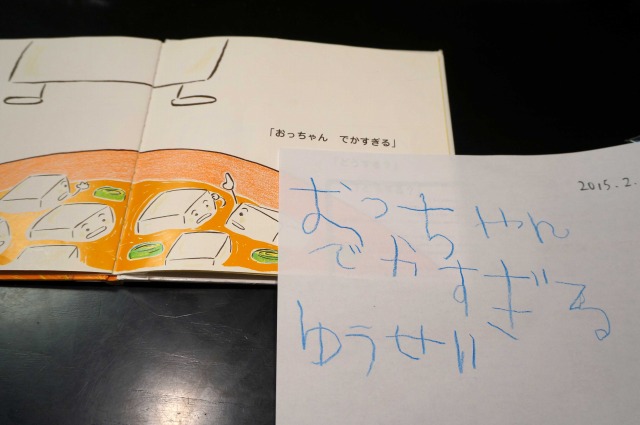 「おっちゃん でかすぎる」
2015.2.
おっちゃん
でかすぎる
ゆうせい